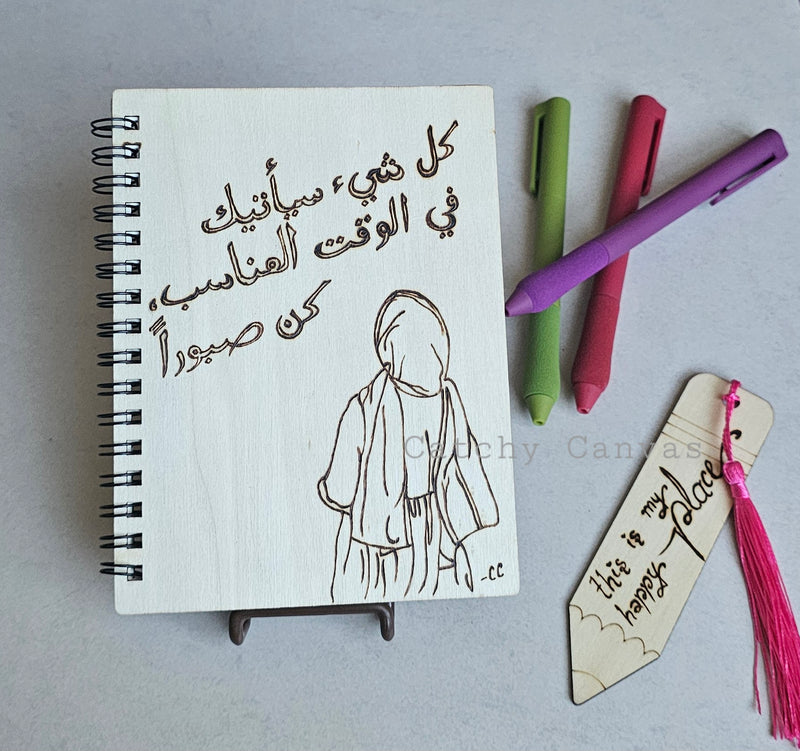 كل شيء سيأنيك
في الوقت المناسب،
كن صبوراً
-CC
Catchy Canvas
this is my
happy place